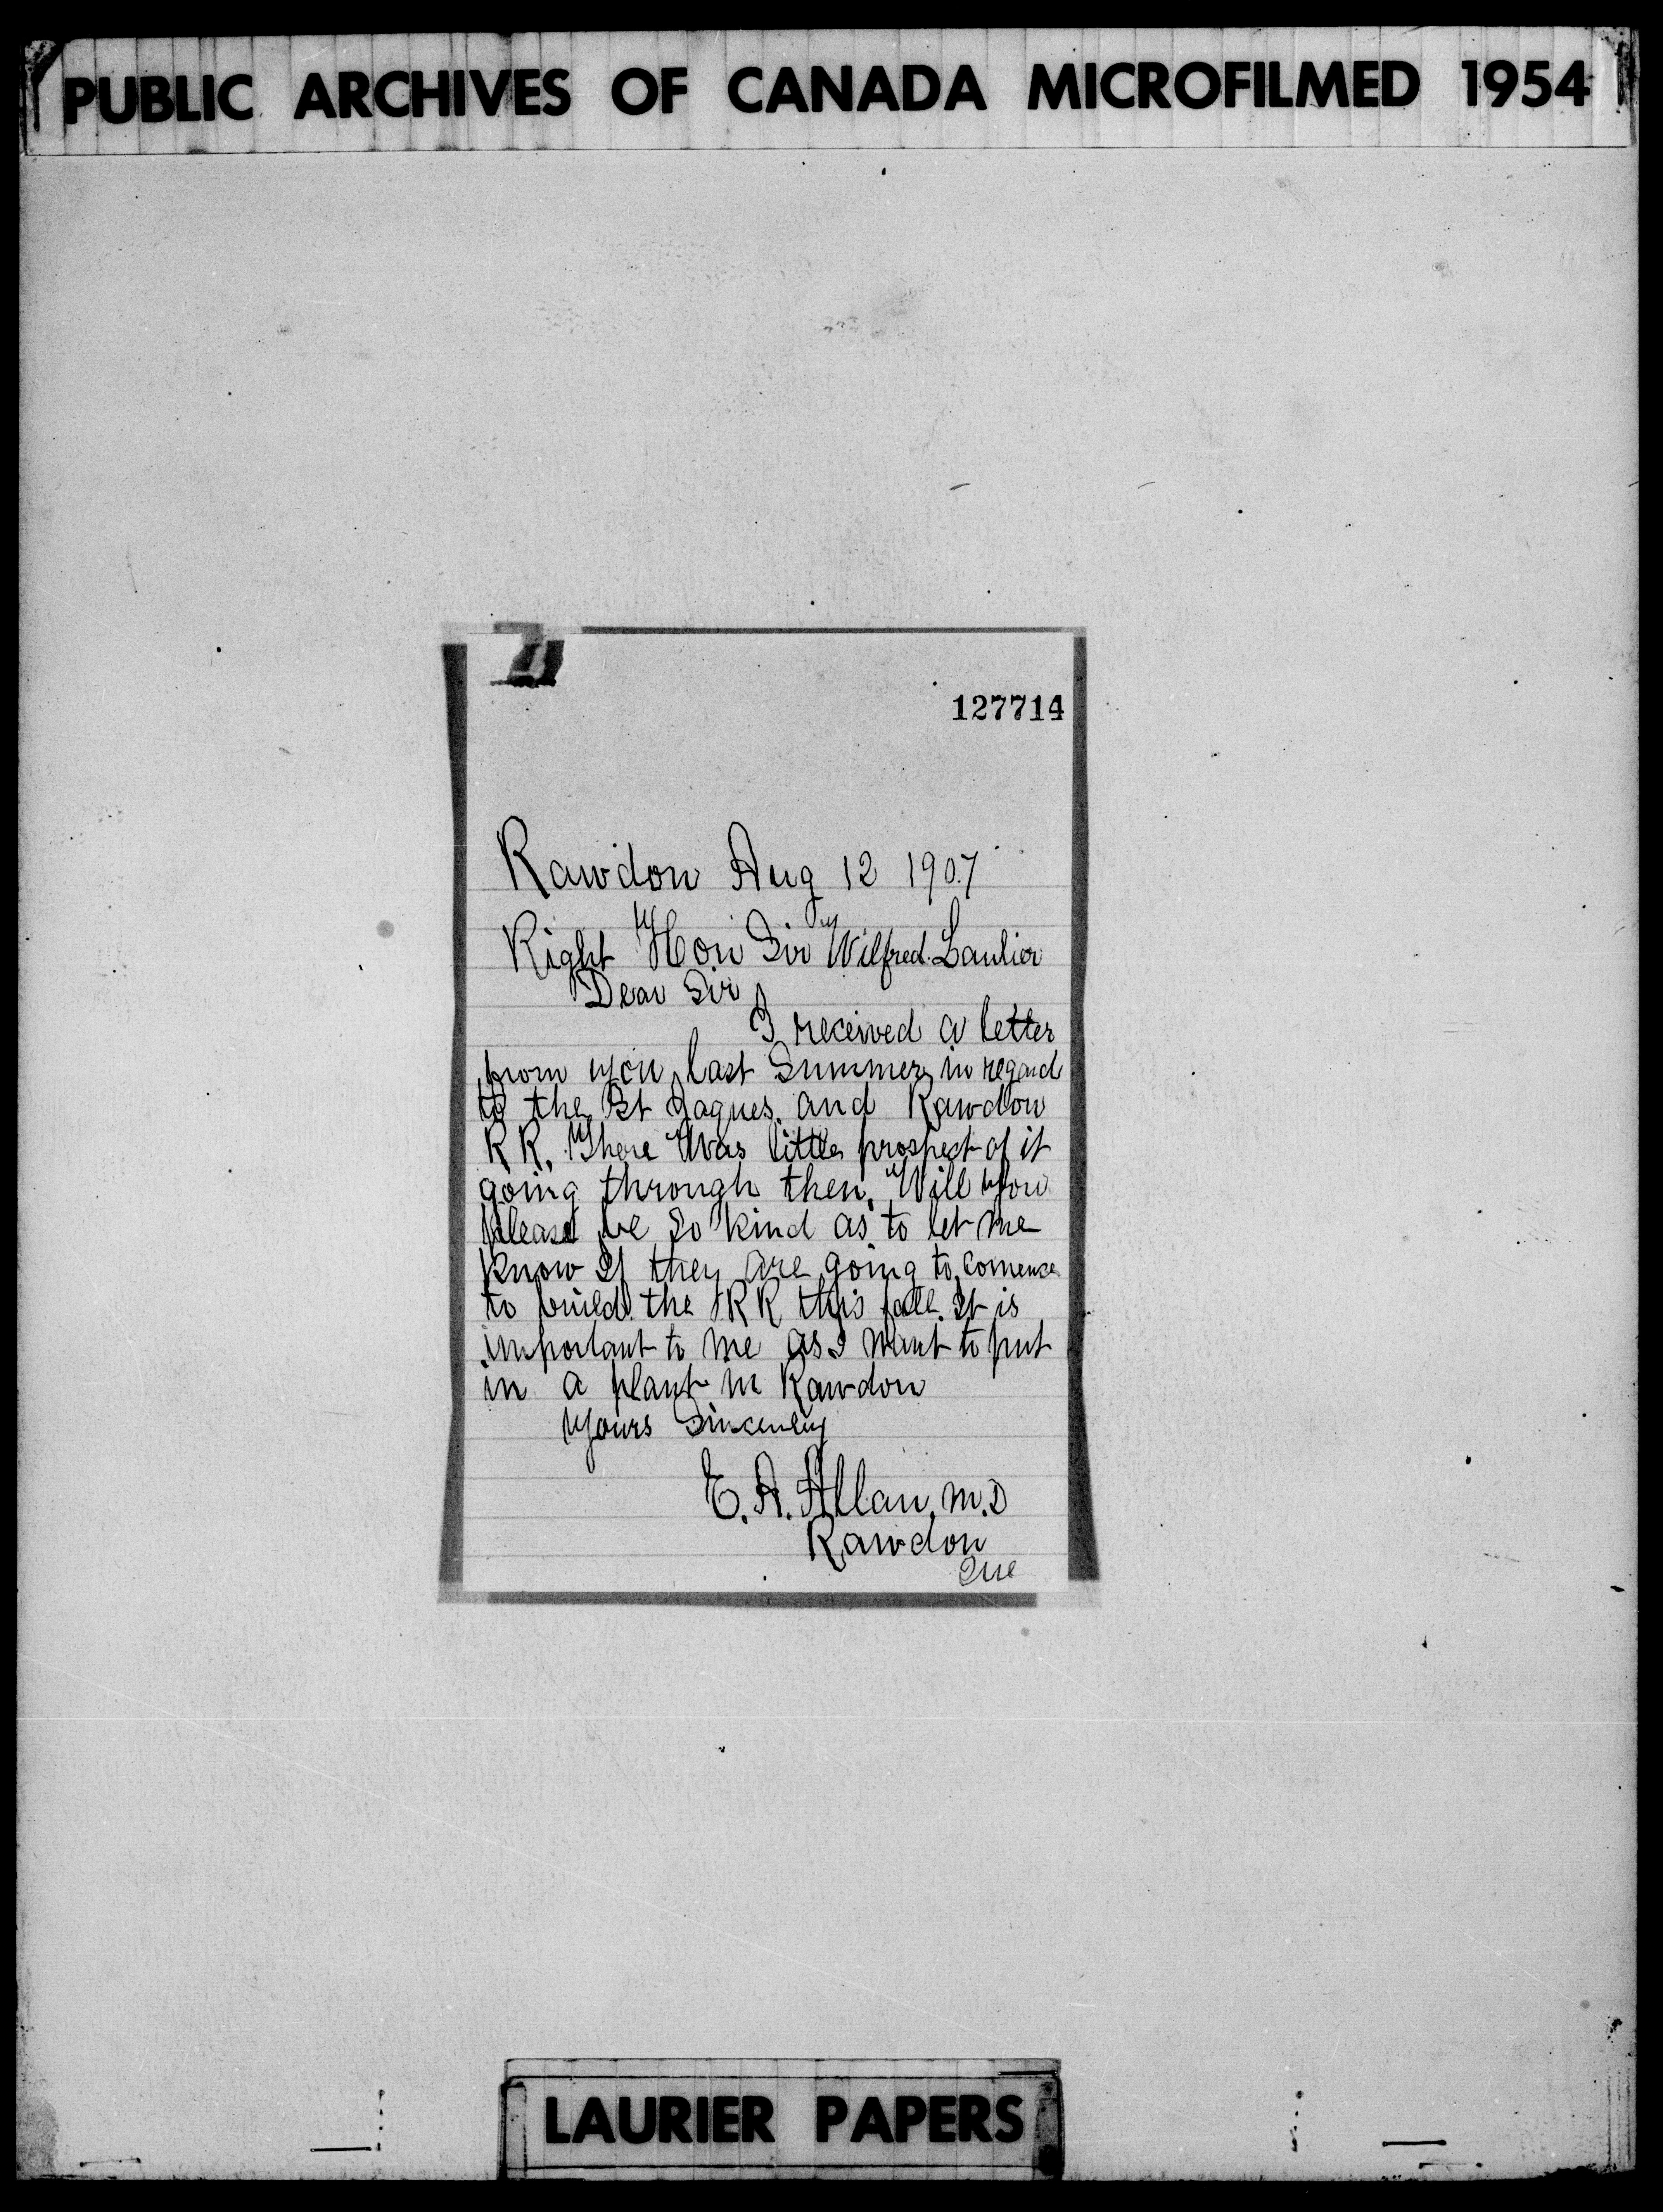 PUBLIC ARCHIVES OF CANADA MICROFILMED 1954
127714
Rawdon Aug 12 1907
Right Hon Sir Wilfred Laulier
Dear Sir
I received a letter
from you last Summer in regard
to the St Jaques and Rawdon
R R. There Was little prospect of it
going through then. Will you
please be so kind as to let me
know If they are going to comence
to build the R R this fall. It is
important to me as I want to put
in a plant in Rawdon
Yours Sincerely
E. A. Allan, M.D
Rawdon
Que
LAURIER PAPERS